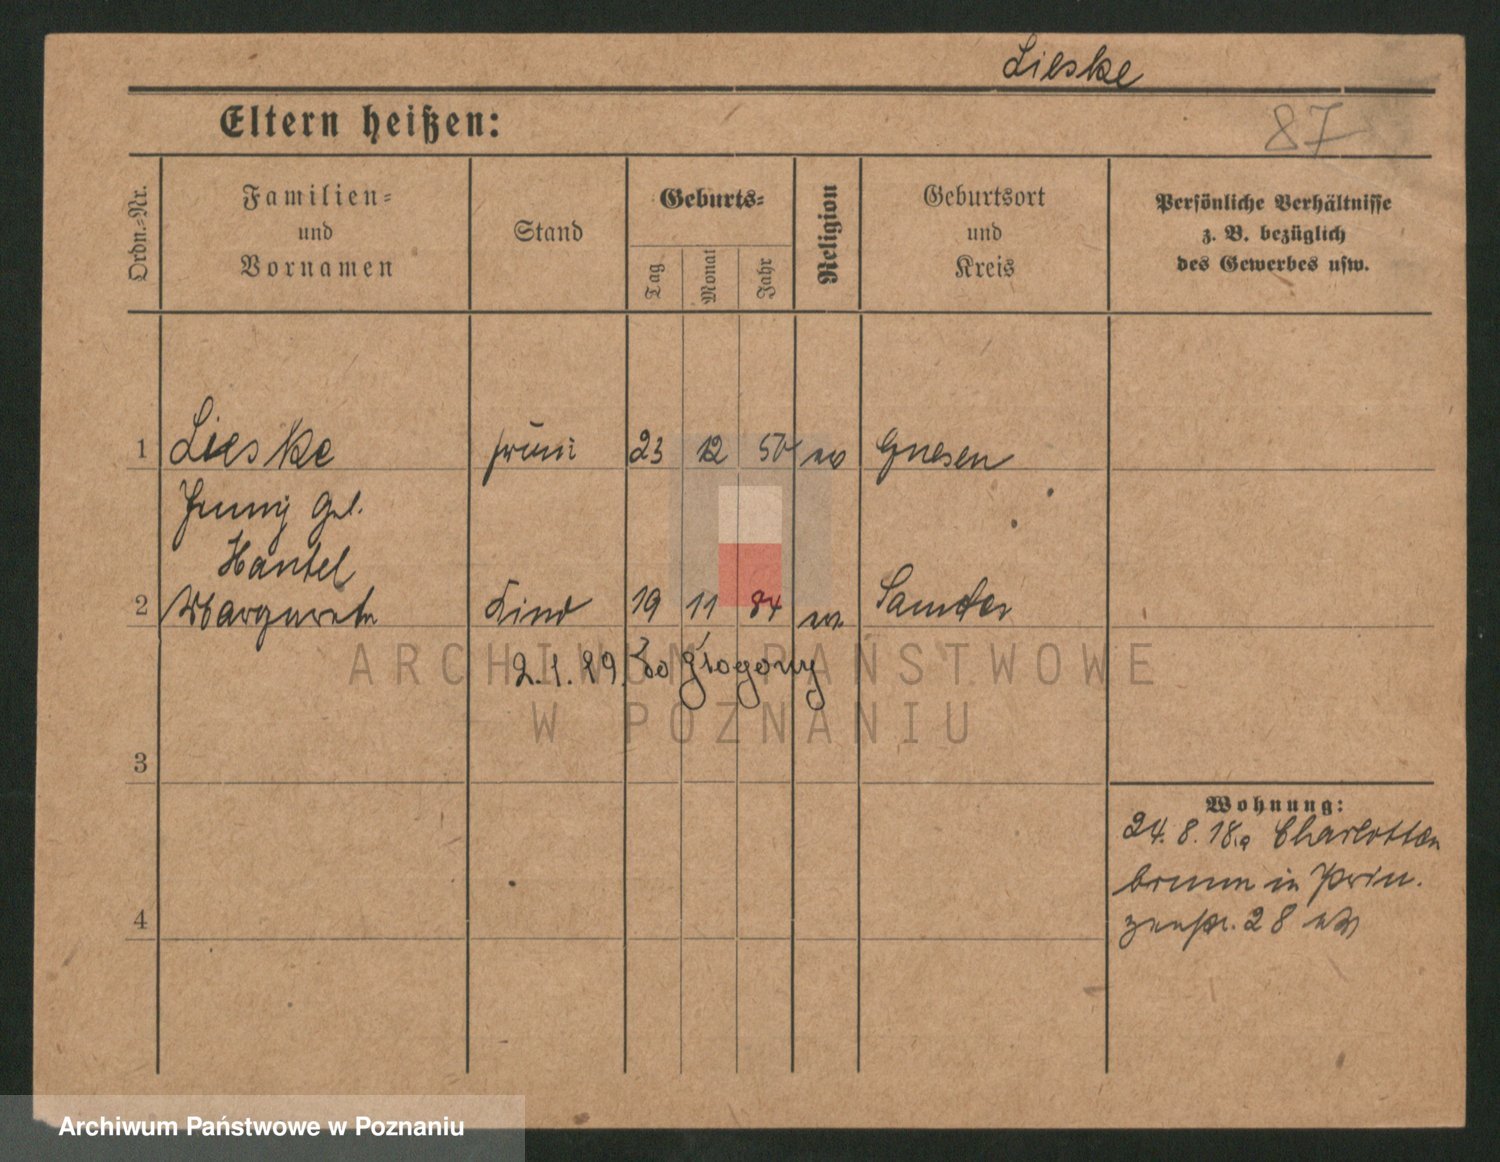 Lieske
Eltern heißen:
87
Ordn.-Nr.
Familien-
und
Vornamen
Stand
Geburts-
Tag
Monat
Jahr
Religion
Geburtsort
und
Kreis
Persönliche Verhältnisse
z. B. bezüglich
des Gewerbes usw.
1 Lieske 23 12 50 ev Gnesen
Jenny geb.
Hantel
2 Margarete Kind 19 11 84 ev. Samter
2.1.29. Do Głogowy
ARCHIWUM PAŃSTWOWE
W POZNANIU
3
Wohnung:
24. 8. 18. Charlotten
brunn in Prin.
4
28
Archiwum Państwowe w Poznaniu